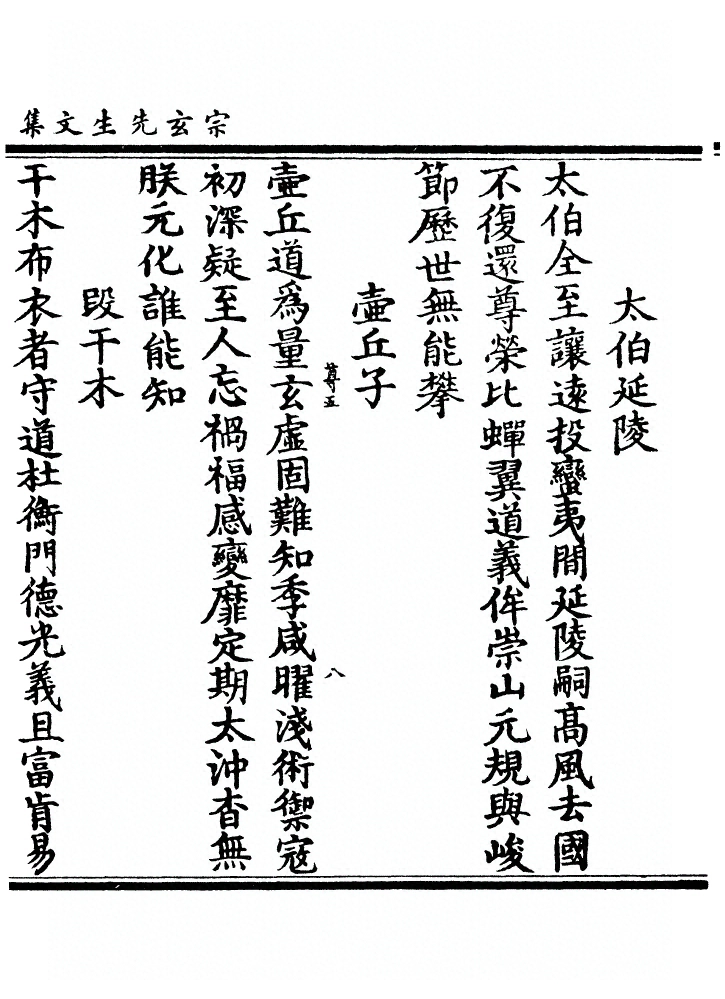 宗玄先生文集
太伯延陵
太伯全至讓遠投蠻夷間延陵嗣高風去國
不復還尊榮比蟬翼道義侔崇山元規與峻
節歷世無能攀
壺丘子
尊五
八
壺丘道為量玄虛固難知季咸曜淺術禦寇
初深疑至人忘禍福感變靡定期太沖杳無
朕元化誰能知
段干木
干木布衣者守道杜衡門德光義且富肯易